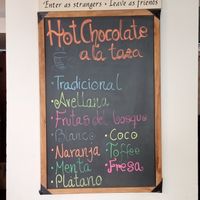 Enter as strangers • Leave as friends
Hot Chocolate
a la taza
• Tradicional
• Avellana
• Frutas del bosque
• Blanco • Coco
• Naranja • Toffee
• Menta • Fresa
• Platano